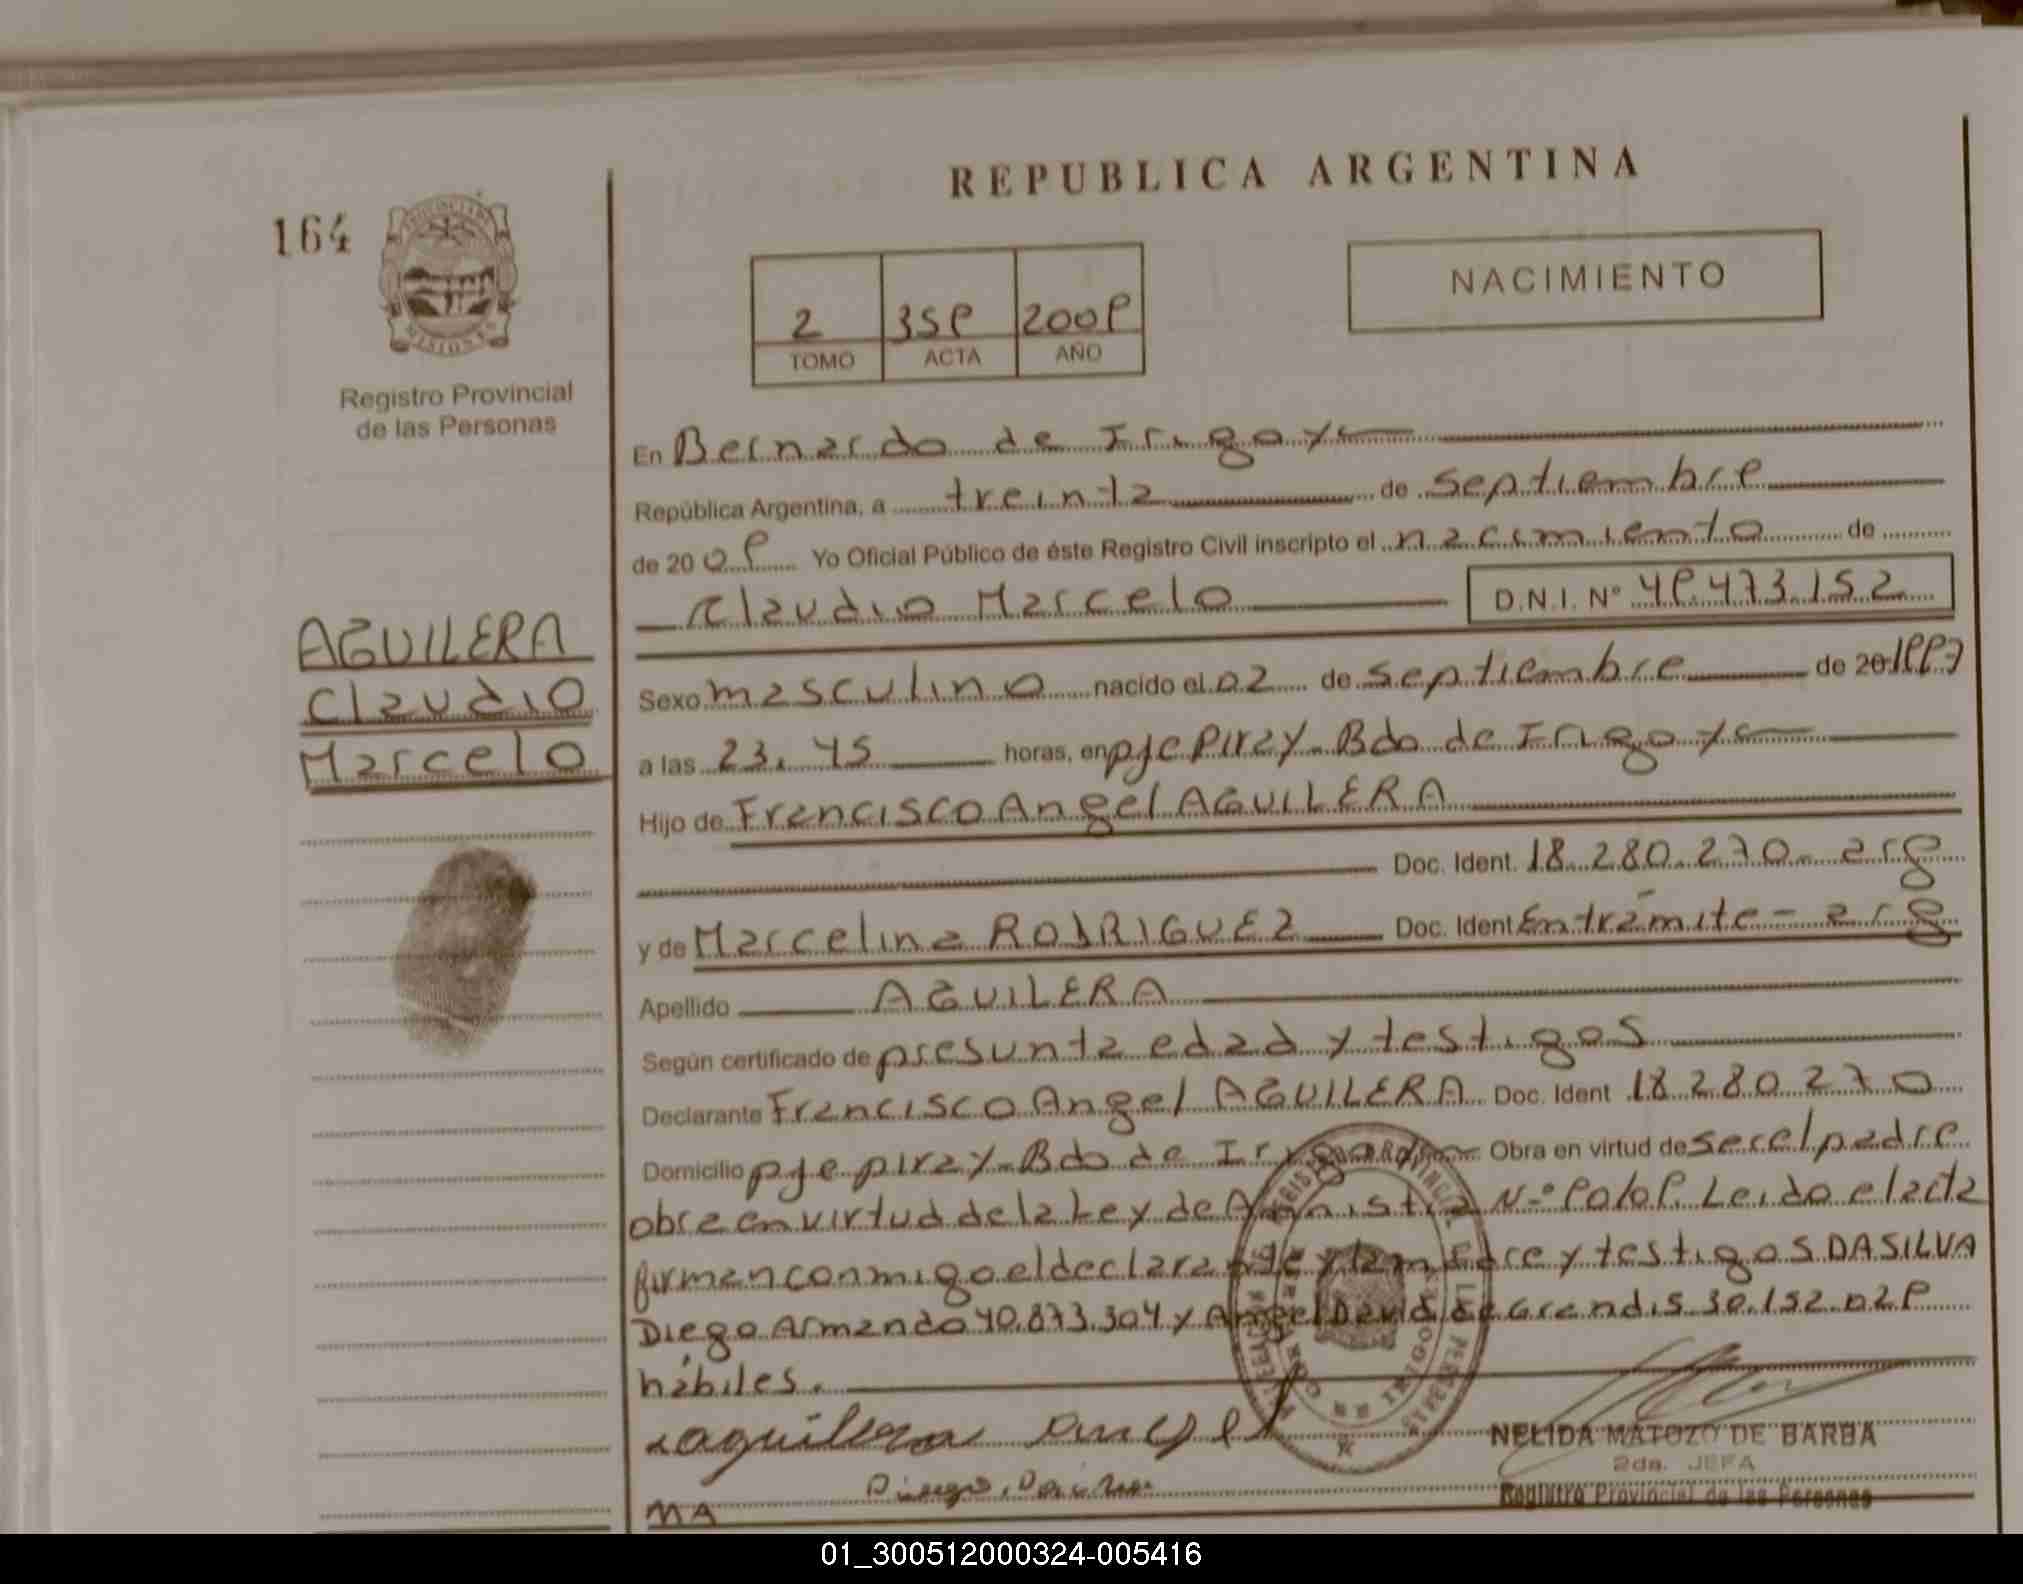 REPUBLICA ARGENTINA
164
NACIMIENTO
2 359 2009
TOMO ACTA AÑO
Registro Provincial
de las Personas
En Bernardo de Irigoyen
República Argentina, a treinta de septiembre
de 2009 Yo Oficial Público de éste Registro Civil inscripto el nacimiento de
Claudio Marcelo D.N.I. Nº 49.473.152
AGUILERA
Claudio
Marcelo
Sexo masculino nacido el 02 de septiembre de 20 1997
a las 23.45 horas, en pje Piray-Bdo de Irigoyen
Hijo de Francisco Angel AGUILERA
Doc. Ident. 18.280.270- arg
y de Marcelina RODRIGUEZ Doc. Ident En trámite- arg
Apellido AGUILERA
Según certificado de presunta edad y testigos
Declarante Francisco Angel AGUILERA Doc. Ident 18.280.270
Domicilio pje piray-Bdo de Irigoyen Obra en virtud de ser el padre
obra en virtud de la Ley de Amnistia N-º 90/09. Leido el acta
firman conmigo el declarante y la madre y testigos DASILVA
Diego Armando 40.873.304 y Angel David de Grandis 30.152.029
hábiles.
aguilera angel
NELIDA MATOZO DE BARBA
2da. JEFA
MA
Registro Provincial de las Personas
01_300512000324-005416